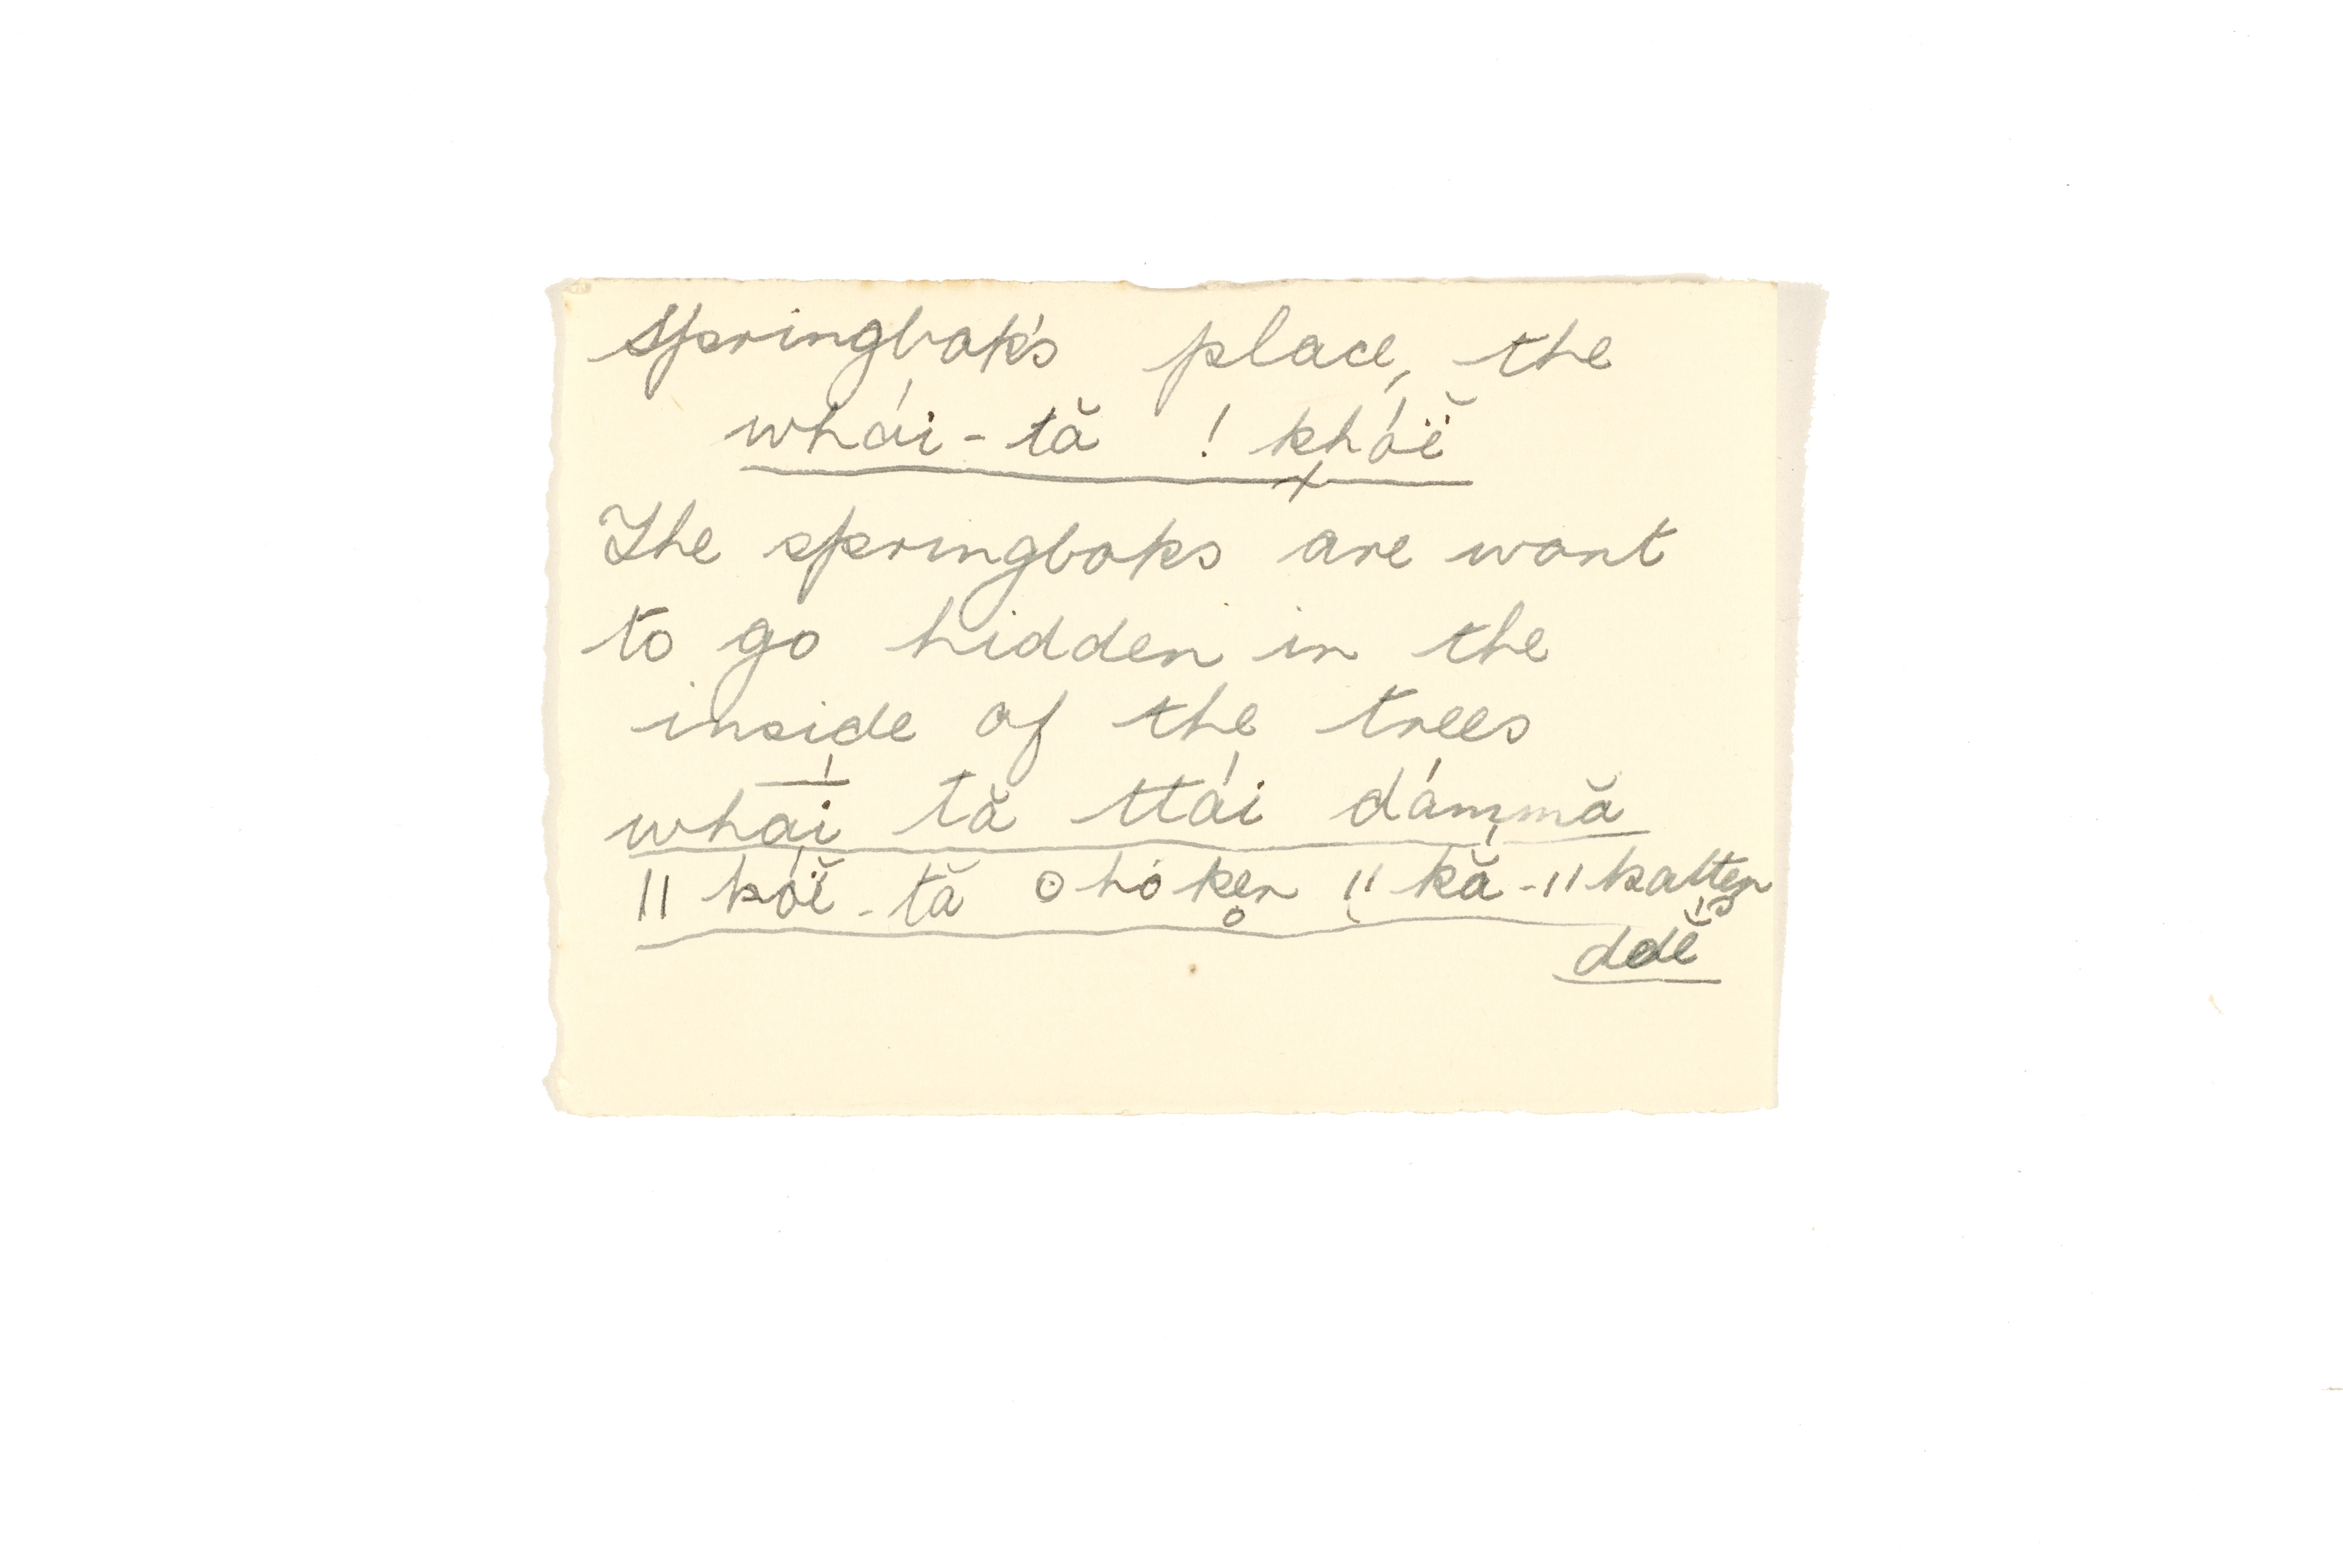 Springbok's place, the
whái-tă ! khóë̆
The springboks are wont
to go hidden in the
inside of the trees
whā́i tă ttái dámmă
ǁ kóë̆-tă ʘhó ken̥ ǁ kă-ǁkatten
ddĕ́